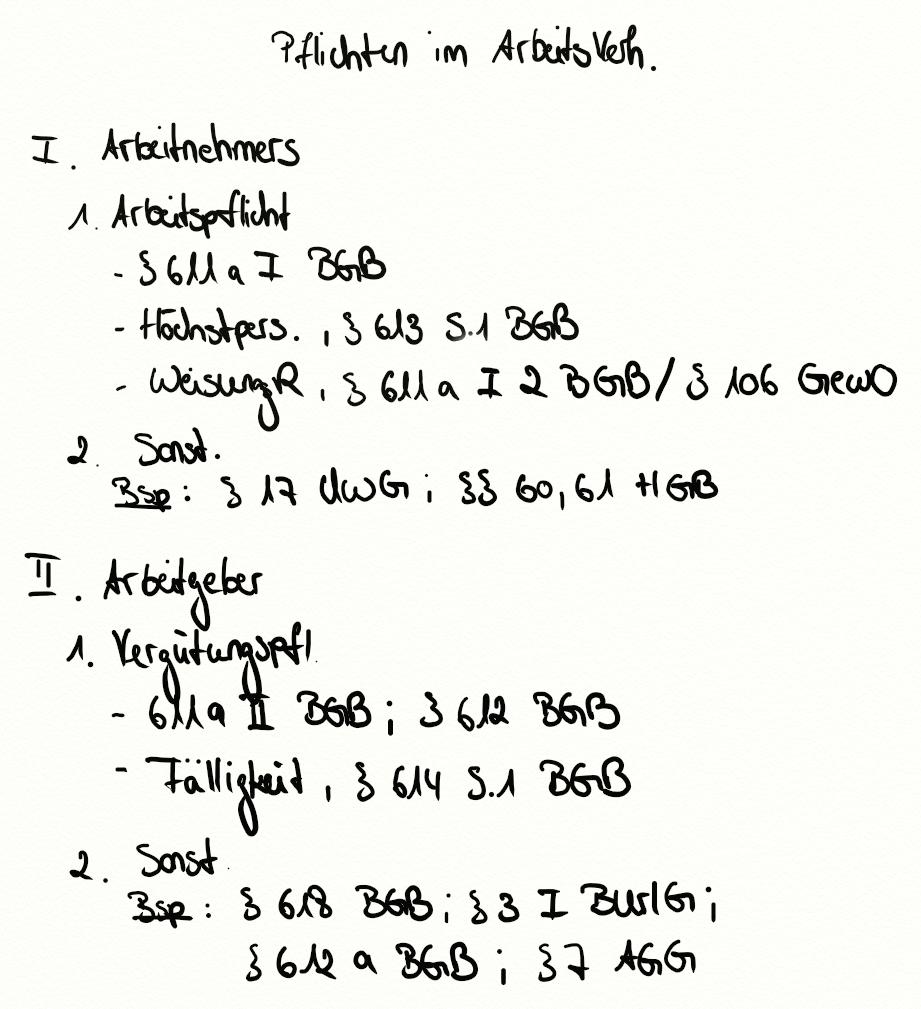 Pflichten im ArbeitsVerh.
I. Arbeitnehmers
1. Arbeitspflicht
- § 611 a I BGB
- Höchstpers., § 613 S.1 BGB
- WeisungsR, § 611 a I 2 BGB/ § 106 GewO
2. Sonst.
Bsp: § 17 UWG; §§ 60, 61 HGB
II. Arbeitgeber
1. Vergütungspfl.
- 611 a II BGB; § 612 BGB
- Fälligkeit, § 614 S.1 BGB
2. Sonst.
Bsp: § 618 BGB; § 3 I BUrlG;
§ 612 a BGB; § 7 AGG